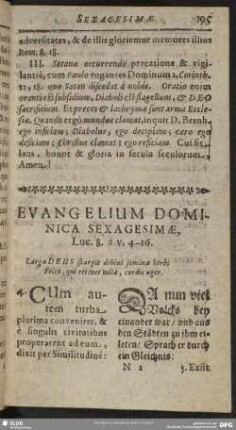 SEXAGESIMÆ 195
adversitates, & de illis gloriemur memores illius
Rom. 8. 18.
III. Satanæ occurrendo precatione & vigi-
lantiâ, cum Paulo rogantes Dominum 2. Corinth.
12, 18. quo Satan discedat à nobis. Oratio enim
oranti est subsidium, Diabolo est flagellum, & DEO
sacrificium. Et preces & lacrymæ sunt arma Eccle-
siæ. Quando ergò mundus clamat, inquit D. Bernh.
ego deficiam; Christus clamat: ego reficiam. Cui sit
laus, honor & gloria in secula seculorum,
Amen!
EVANGELIUM DOMI-
NICA SEXAGESIMÆ,
Luc. 8. â v. 4-16.
Larga DEUS spargit divini semina verbi
Felix, qui retinet talia, cordis ager.
4. CUm au-
tem turba
plurima conveniret, &
è singulis civitatibus
properarent ad eum,
dixit per Similitudinē:
DA nun viel
Volcks bey
einander war / und aus
den Städten zu ihm ei-
leten / Sprach er durch
ein Gleichnis:
N 2 5. Exiit